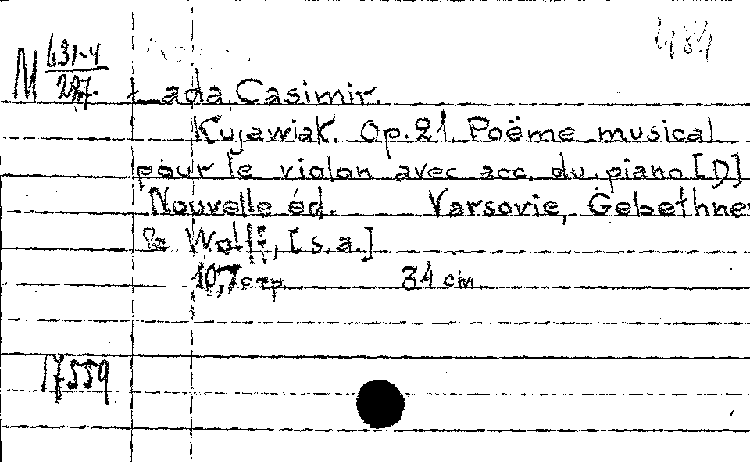 484
M 631-4
287.
Łada Casimir.
Kujawiak. Op. 21. Poëme musical
pour le violon avec acc. du piano [D]
Nouvelle éd. Varsovie, Gebethner
& Wolff, [s.a.]
34 cm.
17559